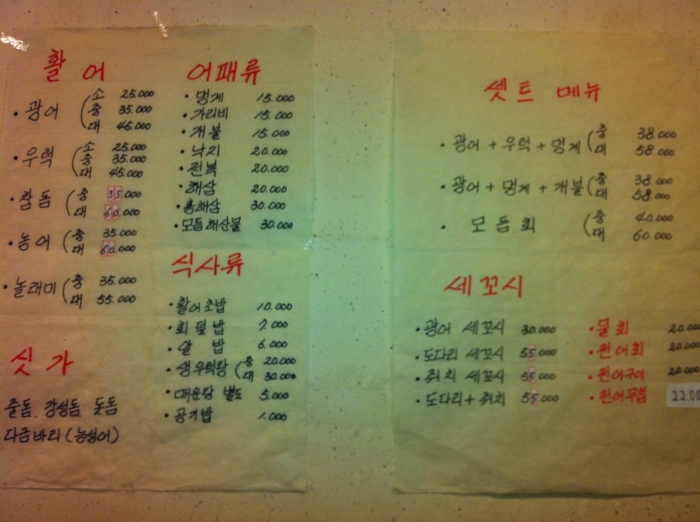 활어
· 광어 ( 소 25.000
중 35.000
대 45.000
· 우럭 ( 소 25.000
중 35.000
대 45.000
· 참돔 ( 중 55.000
대 60.000
· 농어 ( 중 35.000
대 60.000
· 놀래미 ( 중 35.000
대 55.000
싯가
줄돔. 감성돔. 돗돔
다금바리 (능성어)
어패류
· 멍게 15.000
· 가리비 15.000
· 개불 15.000
· 낙지 20.000
· 전복 20.000
· 해삼 20.000
· 홍해삼 30.000
· 모듬해산물 30.000
식사류
· 활어초밥 10.000
· 회덮밥 7.000
· 알밥 6.000
· 생우럭탕 ( 중 20.000
대 30.000
· 매운탕 별도 5.000
· 공기밥 1.000
셋트 메뉴
· 광어 + 우럭 + 멍게 ( 중 38.000
대 58.000
· 광어 + 멍게 + 개불 ( 중 38.000
대 58.000
· 모듬회 ( 중 40.000
대 60.000
세꼬시
· 광어 세꼬시 30.000
· 도다리 세꼬시 55.000
· 쥐치 세꼬시 55.000
· 도다리 + 쥐치 55.000
· 물회 20.000
· 전어회 20.000
· 전어구이 20.000
· 전어무침 22.00